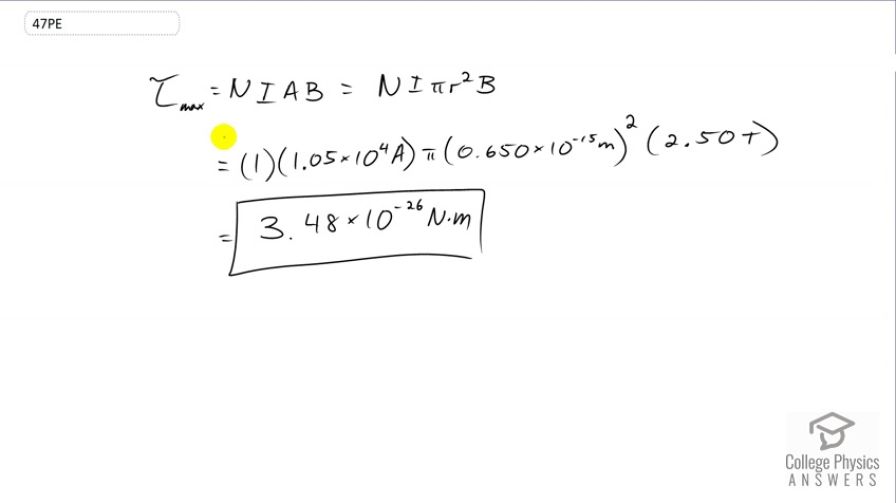 47PE
τmax = NIAB = NIπr²B
= (1)(1.05×10⁴A)π(0.650×10⁻¹⁵m)²(2.50T)
= 3.48×10⁻²⁶ N·m
College Physics
ANSWERS